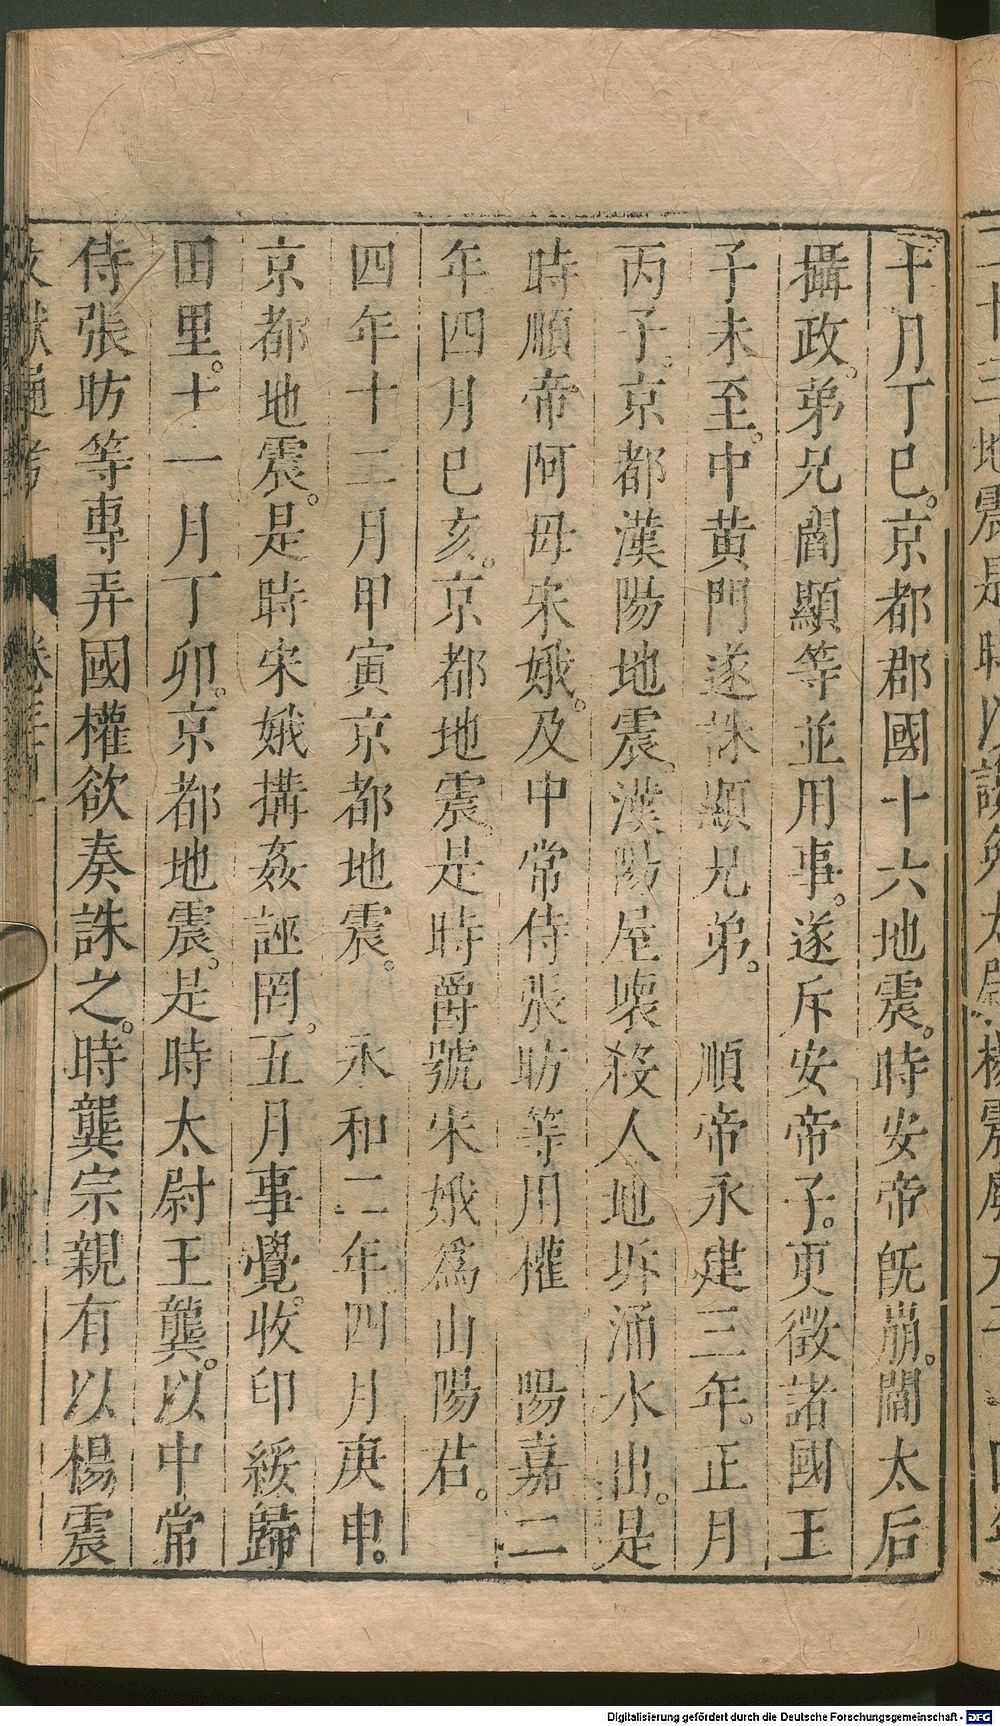 十月丁巳。京都郡國十六地震。時安帝旣崩。閻太后
攝政。弟兄閻顯等並用事。遂斥安帝子。更徵諸國王
子未至。中黃門遂誅顯兄弟。　順帝永建三年。正月
丙子。京都漢陽地震。漢陽屋壞殺人地坼涌水出。是
時順帝阿母宋娥。及中常侍張昉等用權　陽嘉二
年四月巳亥。京都地震。是時爵號宋娥爲山陽君。
四年十二月甲寅京都地震。　永和二年四月庚申。
京都地震。是時宋娥搆姦誣罔。五月事覺。收印綬歸
田里。十一月丁卯。京都地震。是時太尉王龔。以中常
侍張昉等專弄國權欲奏誅之。時龔宗親有以楊震
Digitalisierung gefördert durch die Deutsche Forschungsgemeinschaft - DFG